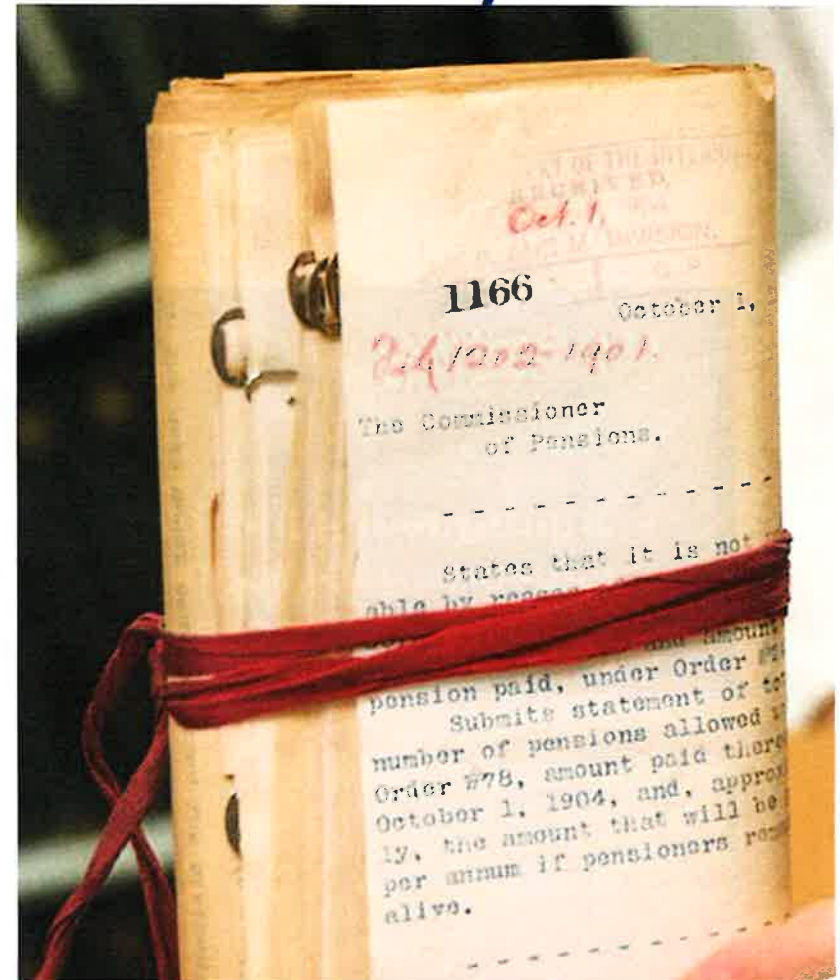 OF THE INTERIOR
RECEIVED
Oct. 1,
DIVISION.
1166
October 1,
1202-1901.
The Commissioner
of Pensions.
- - - - - - - - - - -
States that it is not
able by reason
and amount
pension paid, under Order
Submits statement of
number of pensions allowed
Order #78, amount paid
October 1, 1904, and,
ly, the amount that will be
per annum if pensioners
alive.
- - - - - - - - - -